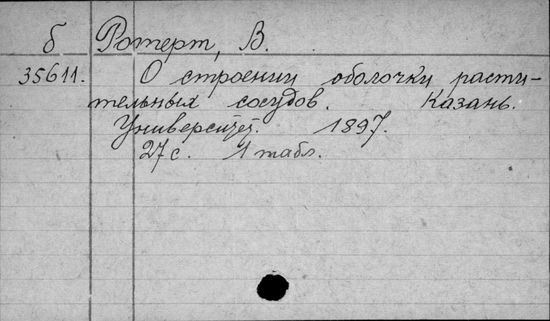 б Ротерт, В.
35611. О строении оболочки расти-
тельных сосудов. Казань.
Университет. 1897.
27 с. 1 табл.